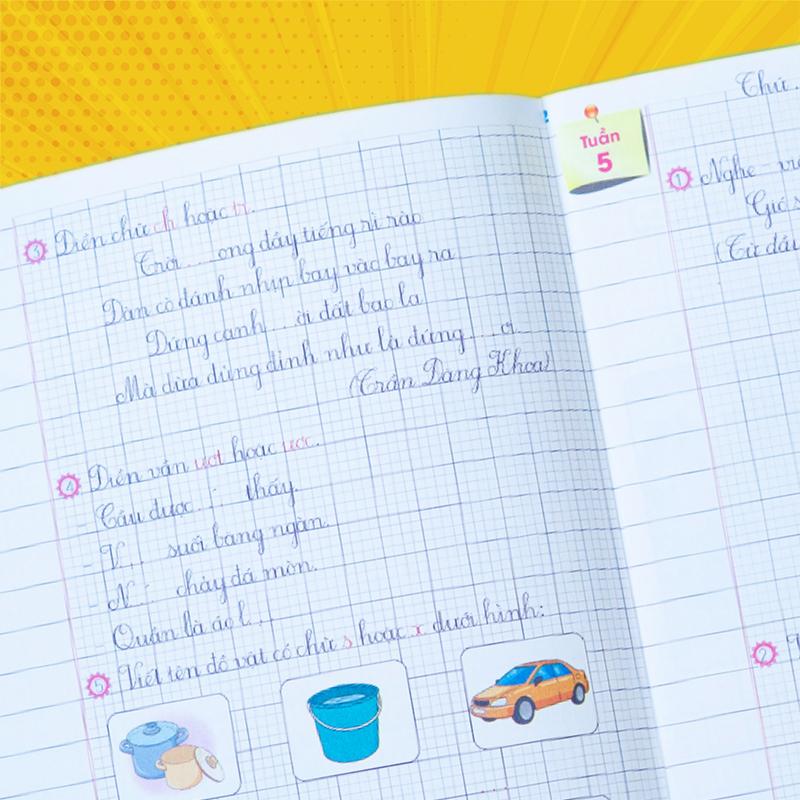 3 Điền chữ ch hoặc tr.
Trời ... ong đầy tiếng rì rào
Đàn cò đánh nhịp bay vào bay ra
Đứng canh ... ời đất bao la
Mà dừa đủng đỉnh như là đứng ... ơi
(Trần Đăng Khoa)
4 Điền vần ướt hoặc ước.
- Cầu được ... thấy.
- V... suối băng ngàn.
- N... chảy đá mòn.
- Quần là áo l...
5 Viết tên đồ vật có chữ s hoặc x dưới hình:
Tuần
5
Thứ ...
1 Nghe - vi
Gió s
(Từ đầu
2